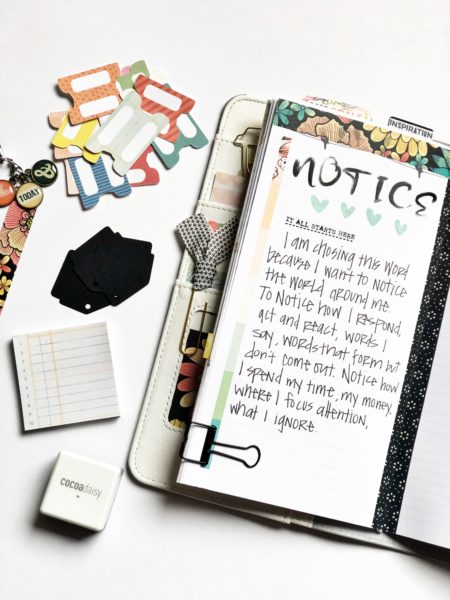 INSPIRATION
NOTICE
IT ALL STARTS HERE
I am chosing this word
because I want to notice
the world around me.
To Notice how I respond,
act and react, words I
say, words that form but
don't come out. Notice how
I spend my time, my money,
where I focus attention,
what I ignore.
TODAY
&
cocoadaisy